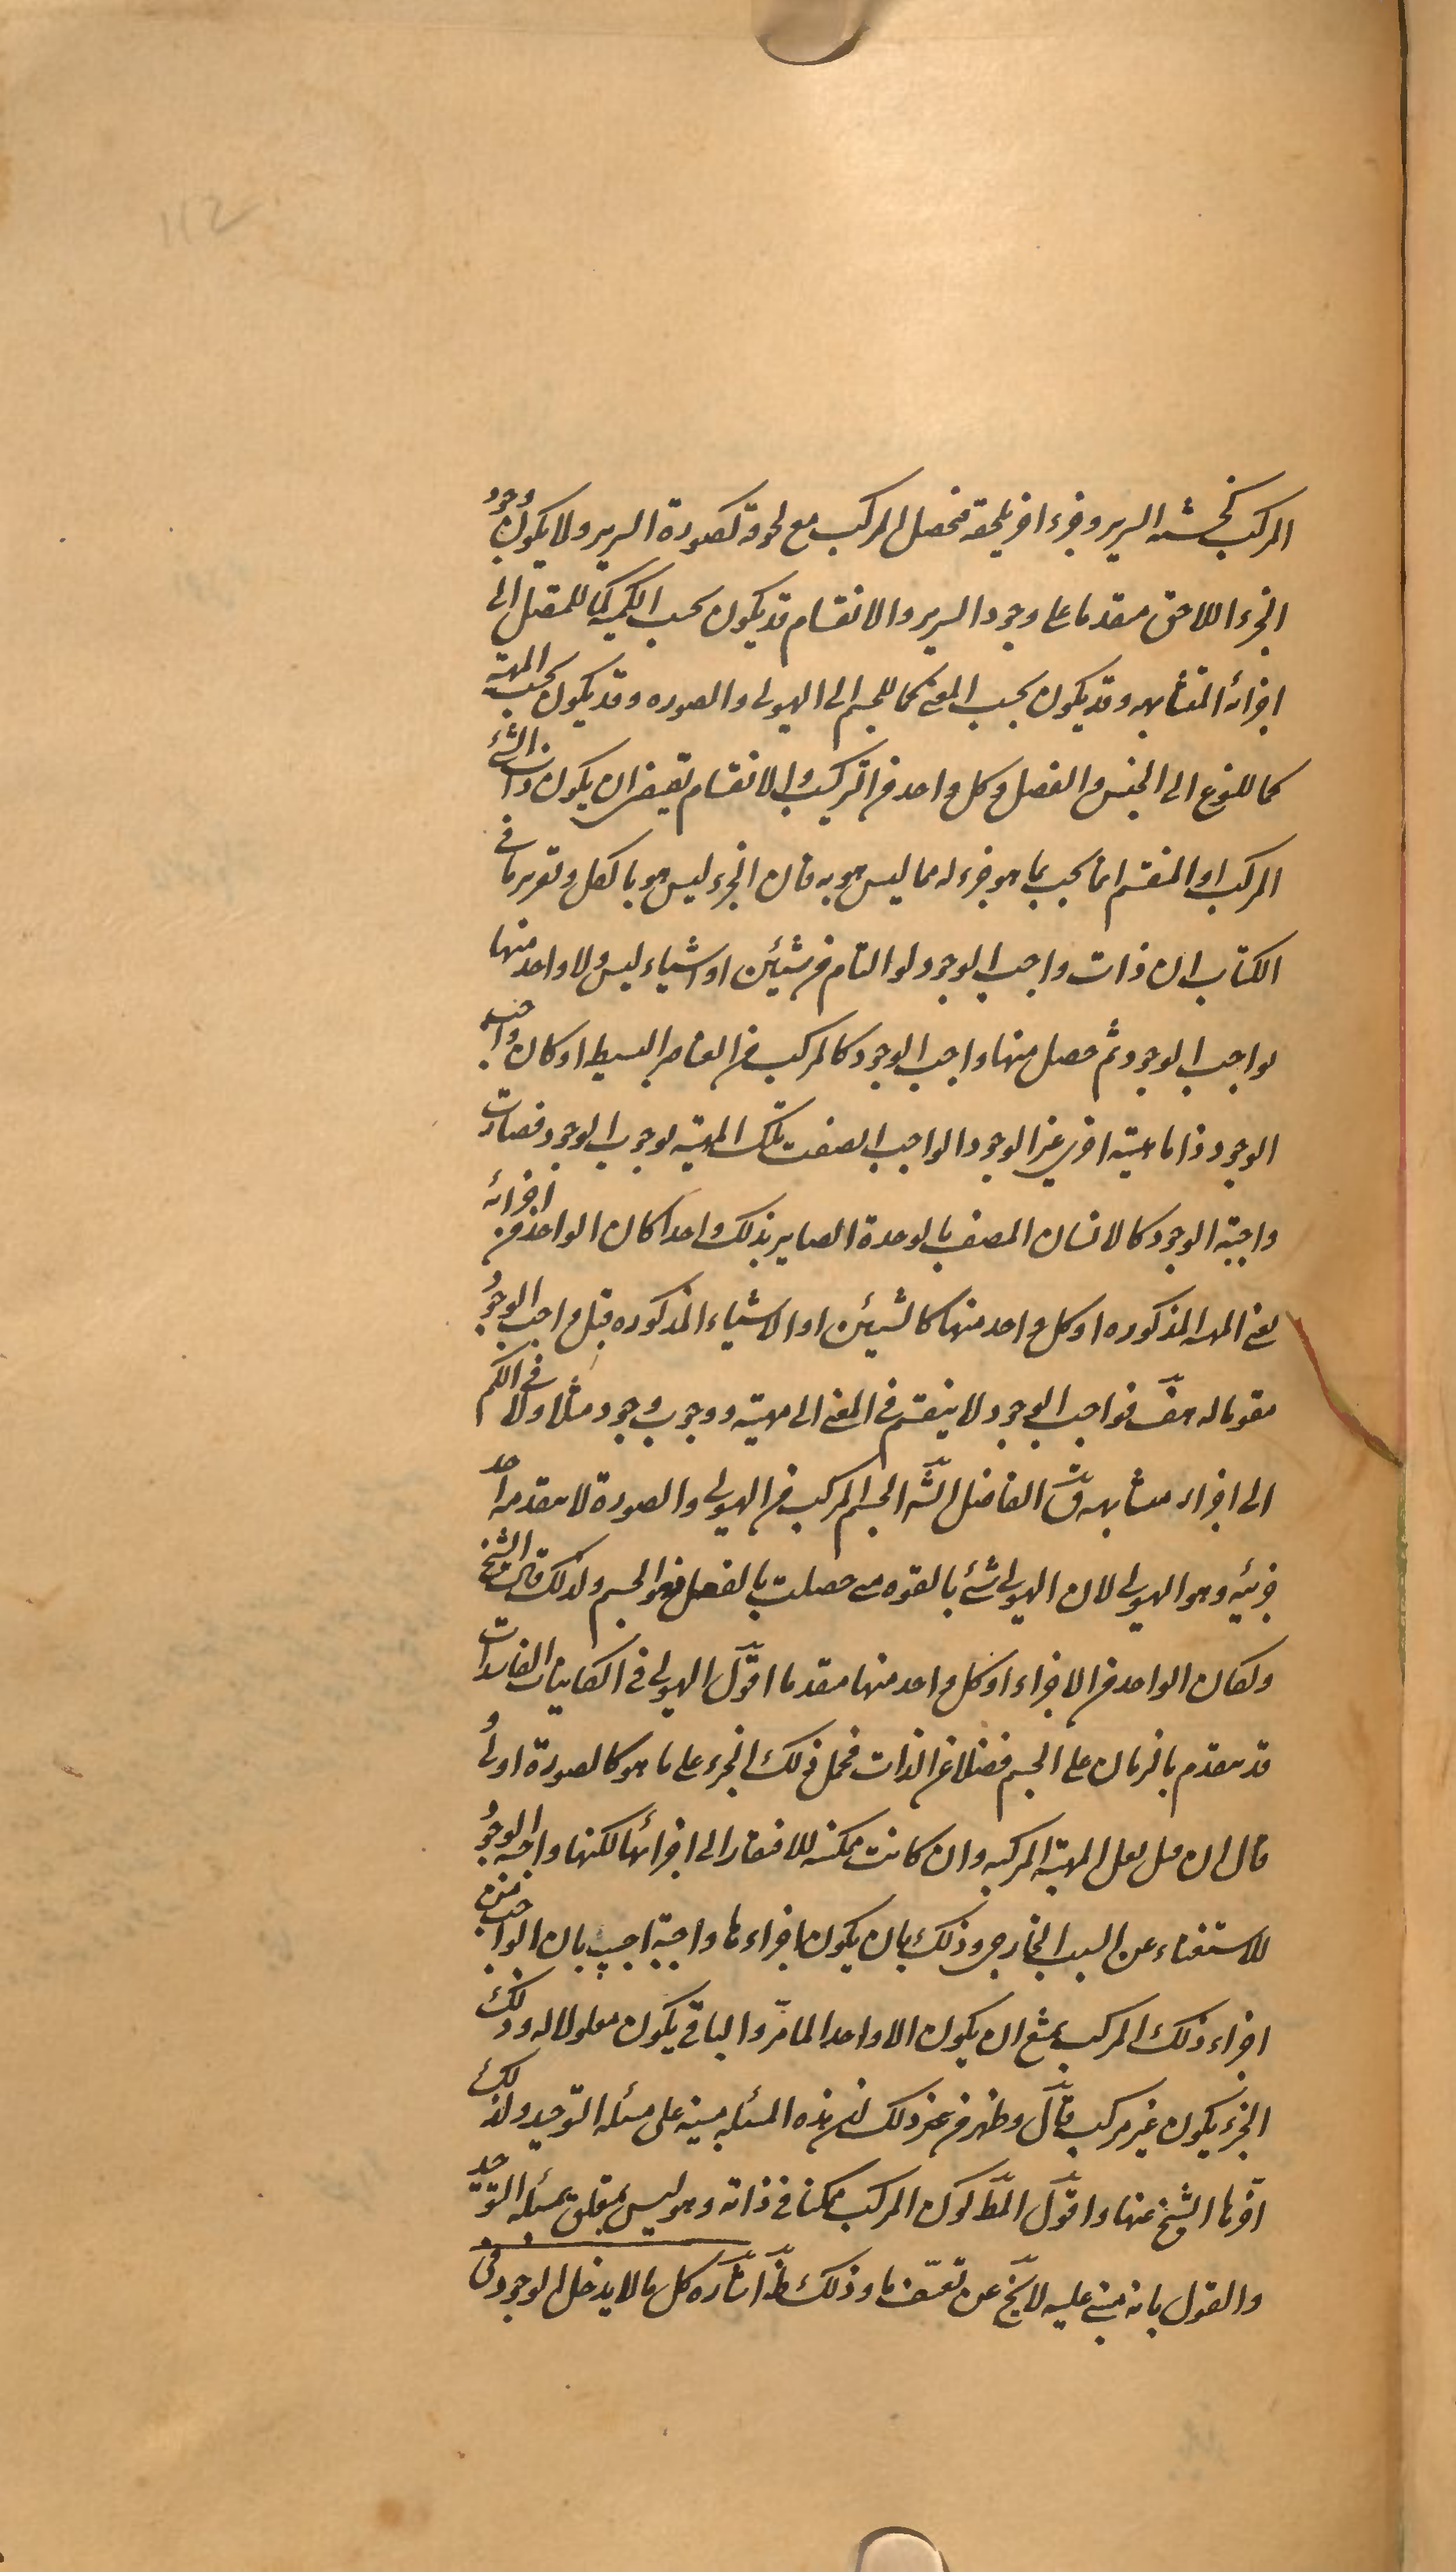 112
المركب كخشبه السرير وجزء اخر يلحقه فحصل المركب مع لحوقه كصورة السرير ولا يكون وجود
الجزء اللاحق متقدما على وجود السرير والانقسام قد يكون بحسب الكميه كما للمتصل الى
اجزائه المتشابهه وقد يكون بحسب المعنى كما للجسم الى الهيولى والصوره وقد يكون بحسب المهية
كما للنوع الى الجنس والفصل وكل واحد من التركيب والانقسام تقتضى ان يكون ذات الشئ
المركب او المنقسم انما يجب بما هو جزء له مما ليس هو به فان الجزء ليس هو بالكل وتقرير ما فى
الكتاب ان ذات واجب الوجود لو التام من شيئين او اشياء ليس ولا واحد منها
بواجب الوجود ثم حصل منها واجب الوجود كالمركب من العناصر البسيطه او كان واجب
الوجود ذا ماهيته اخرى غير الوجود الواجب اتصفت تلك المهية بوجوب الوجود فصارت
واجبة الوجود كالانسان المتصف بالوحدة الصاير بذلك واحدا كان الواحد من اجزائه
يعنى المهيه المذكوره او كل واحد منها كالشيئين او الاشياء المذكوره قبل واجب الوجود
مقوما له هف فواجب الوجود لا ينقسم فى المعنى الى مهية ووجوب وجود مثلا ولا فى الكم
الى اجزاء متشابهه ق الفاضل الشه الجسم المركب من الهيولى والصورة لا يتقدمه احد
جزئيه وهو الهيولى لان الهيولى شئ بالقوه متى حصلت بالفعل فهو الجسم ولذلك قال الشيخ
ولكان الواحد من الاجزاء او كل واحد منها متقدما اقول الهيولى فى الكاينات الفاسدات
قد يتقدم بالزمان على الجسم فضلا عن الذات فحمل ذلك الجزء على ما هو كالصورة اولى و
قال ان قيل لعل المهية المركبه وان كانت ممكنه للافتقار الى اجزائها لكنها واجبه الوجود
للاستغناء عن السبب الخارجى وذلك بان يكون اجزاءها واجبة اجيب بان الواجب من
اجزاء ذلك المركب يمتنع ان يكون الا واحدا لما مر والباقى يكون معلولا له وذلك
الجزء يكون غير مركب قال وظهر من ذلك ان هذه المسئله مبنيه على مسئله التوحيد ولذلك
اخرها الشيخ عنها واقول المط كون المركب ممكنا فى ذاته وهو ليس بمتعلق بمسئله التوحيد
والقول بانه مبنى عليه لا يخ عن تعسف ما وذلك ظ اشاره كل ما لا يدخل الوجود فى